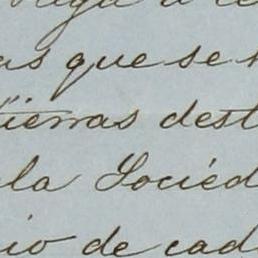 as que se
tierras dest
la Sociéd
io de cad